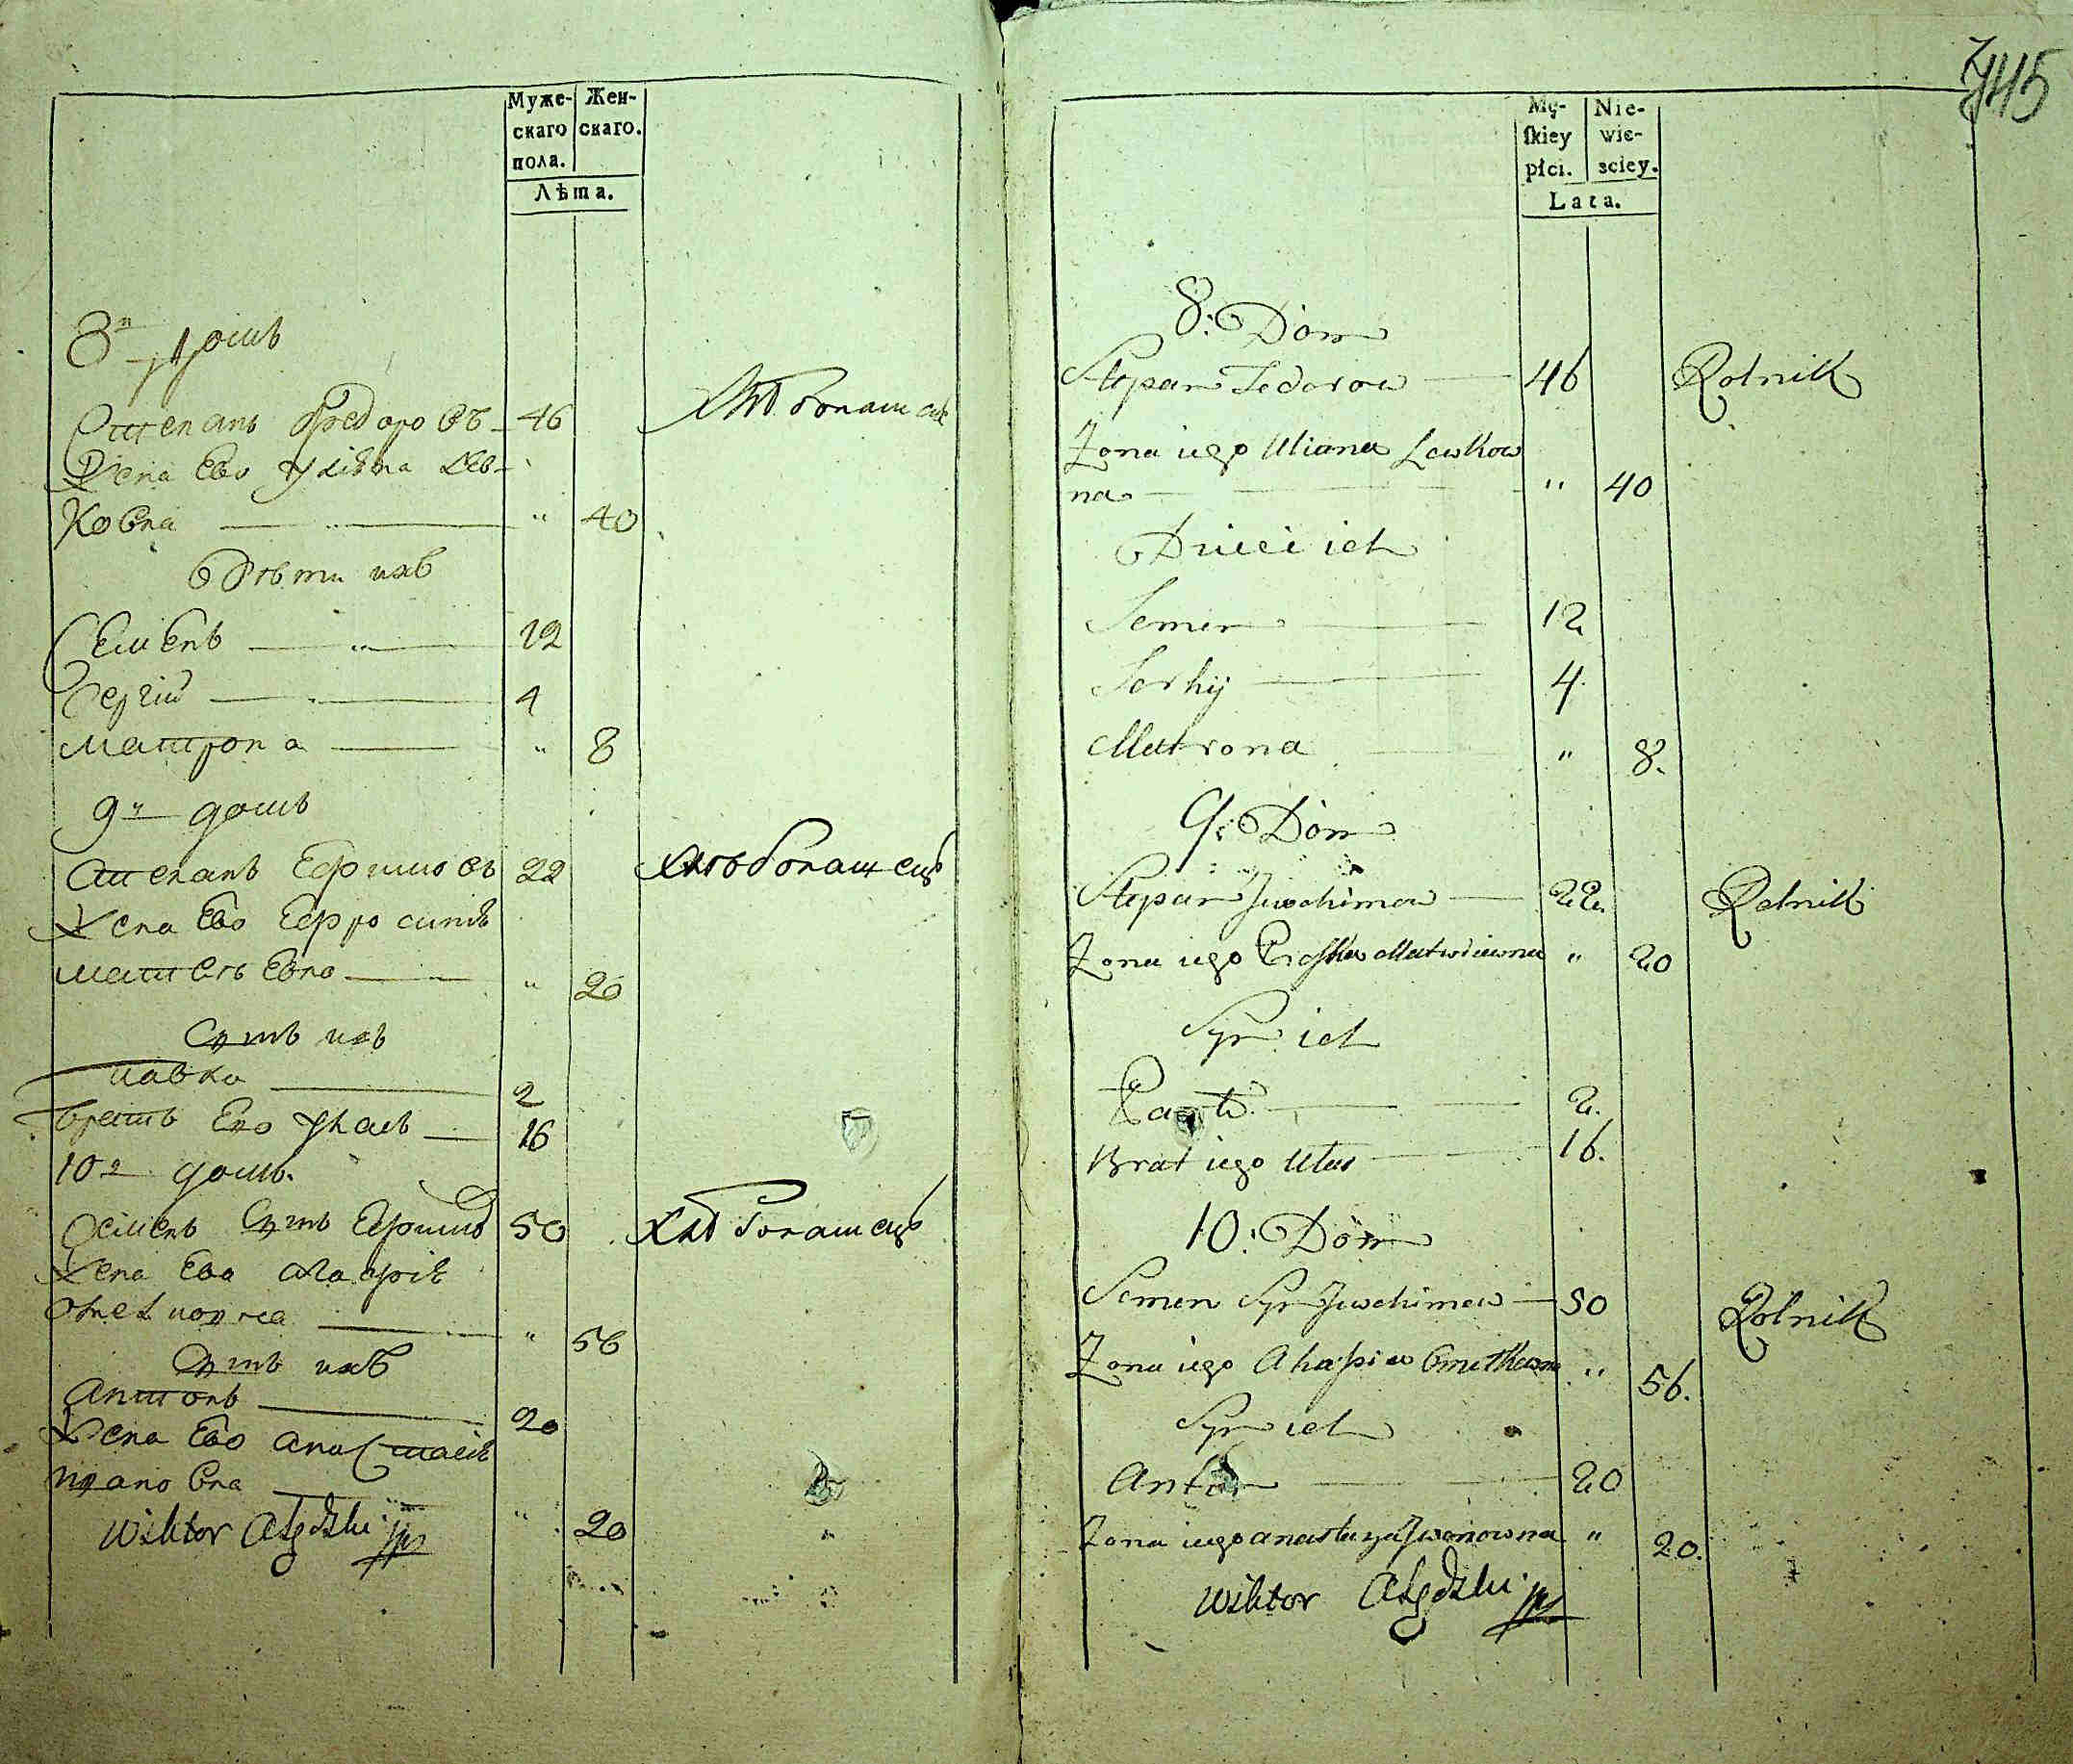 Муже-
скаго
пола.
Жен-
скаго.
Лѣта.
8й домъ
Степанъ Федоровъ 46 Хлѣбопашецъ
Жена Ево Улiяна Лев-
ковна " 40
Дѣти ихъ
Семенъ " 12
Сергiй 4
Матрона " 8
9й домъ
Степанъ Ефимовъ 22 Хлѣбопашецъ
Жена Ево Ефросинiя
Матвѣевна " 20
Сынъ ихъ
Павко 2
Братъ Ево Улас 16
10й домъ.
Семенъ Сынъ Ефимов 50 Хлѣбопашецъ
Жена Ево Агафiя
" 56
Сынъ ихъ
Антонъ 20
Жена Ево Анастасiя
Ивановна
Wiktor " 20
745
Mę-
ſkiey
płci.
Nie-
wie-
sciey.
Lata.
8: Dom
Stepan Fedorow 46 Rolnik
Żona iego Uliana Lewkow
na " 40
Dzieci ich
Semen 12
Serhij 4.
Matrona " 8.
9: Dom
Stepan Jwochimow 22. Rolnik
Żona iego Proſka Matwiewna " 20
Syn ich
2.
Brat iego Ułas 16.
10: Dom
Semen Syn Jwochimow 50 Rolnik
Żona iego Ahafia " 56.
Syn ich
Anton 20
Żona iego Anastazya Jwanowna " 20.
Wiktor